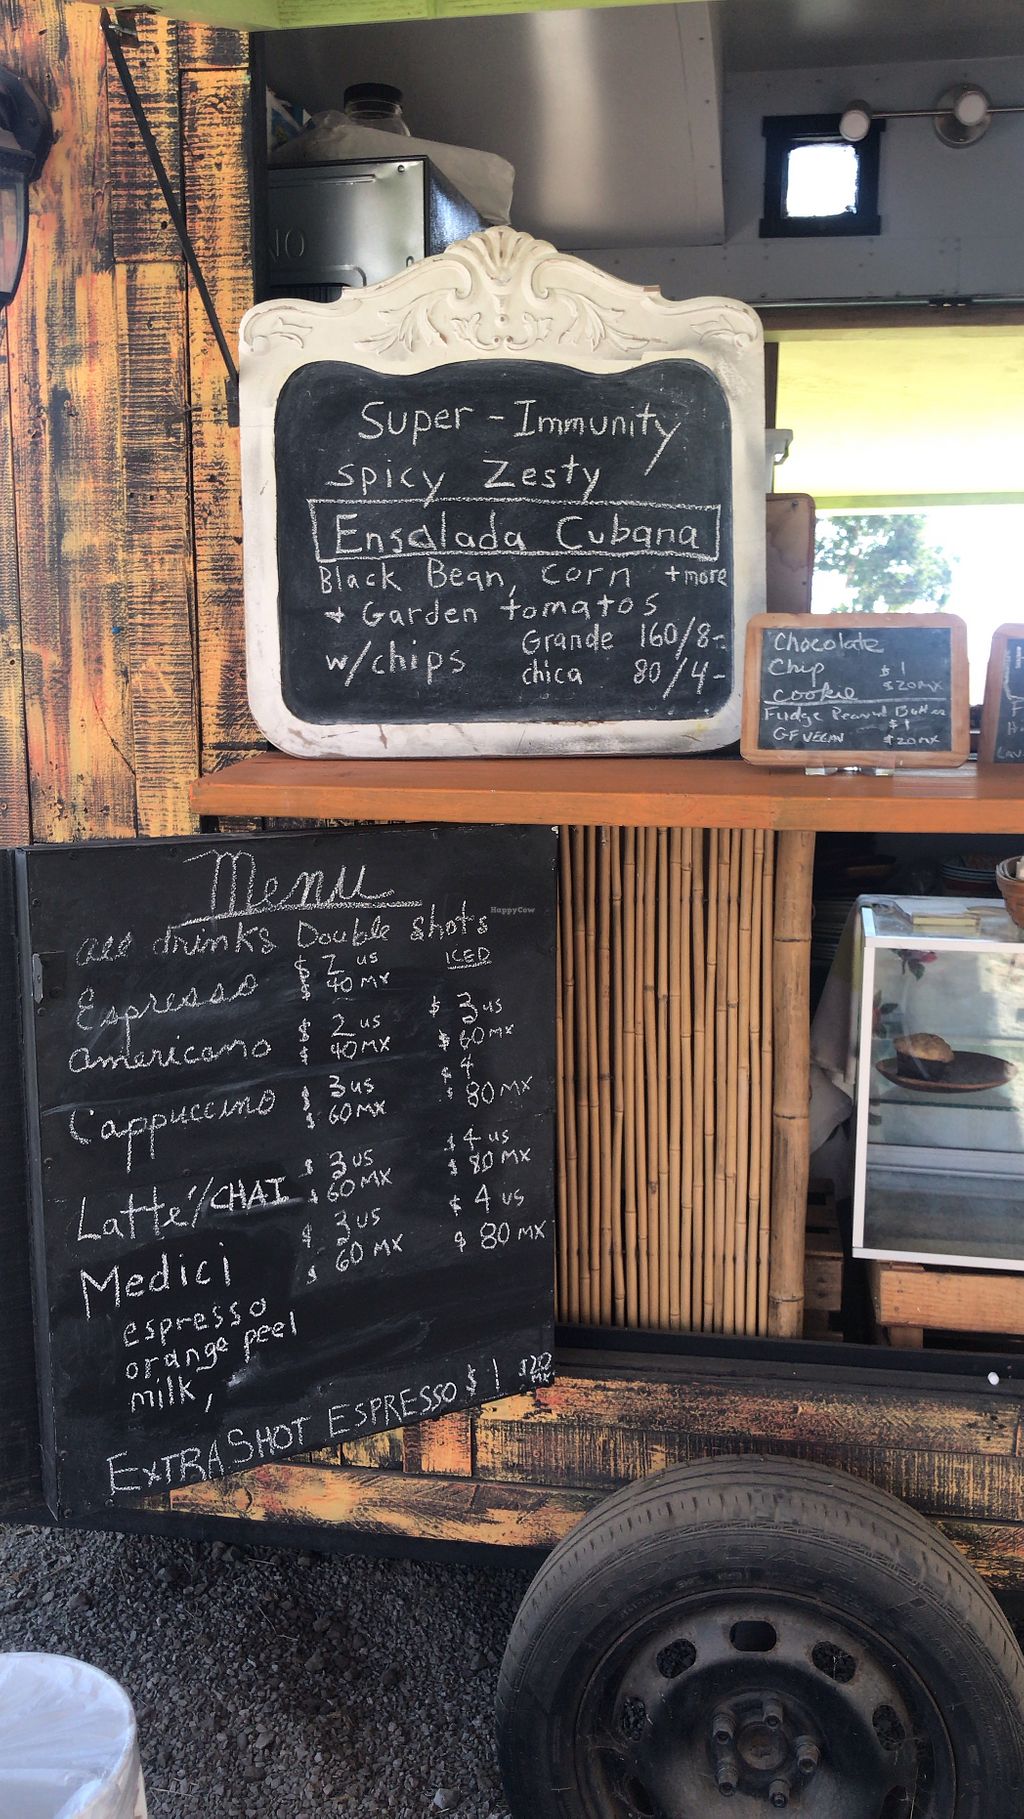 NO
Super-Immunity
Spicy Zesty
Ensalada Cubana
Black Bean, corn +more
+ Garden tomatos
w/chips Grande 160/8-
chica 80/4-
Chocolate
Chip $1
cookie $20MX
Fudge Peanut Butter
$1
GF VEGAN $20MX
Menu
all drinks Double shots
Espresso $2 us ICED
$40 MX
Americano $2 us $3 us
$40MX $60MX
Cappuccino $3us $4
$60MX $80MX
Latté/CHAI $3us $4 us
$60MX $80MX
Medici $3us $4 us
$60 MX $80 MX
espresso
orange peel
milk,
EXTRA SHOT ESPRESSO $1 $20 MX
HappyCow